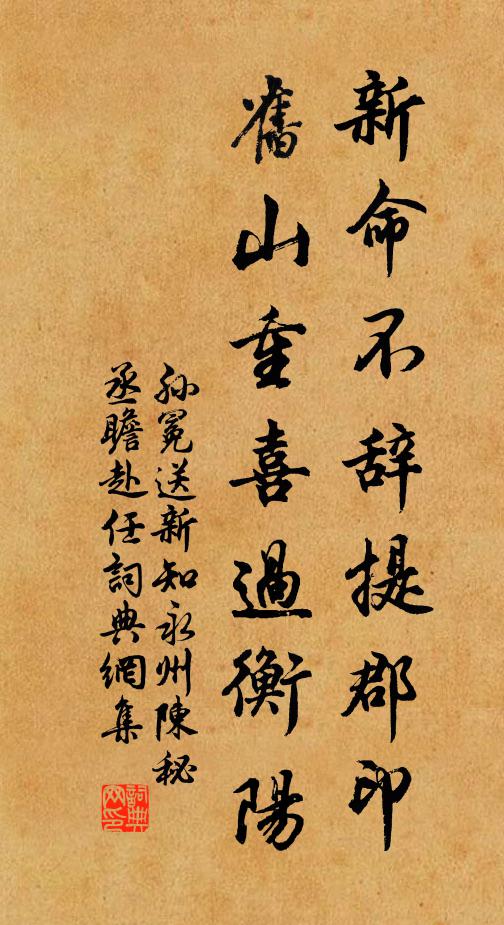 新命不辞提郡印
舊山重喜過衡陽
孙冕送新知永州陳秘
丞瞻赴任詞典網集
詞典网印